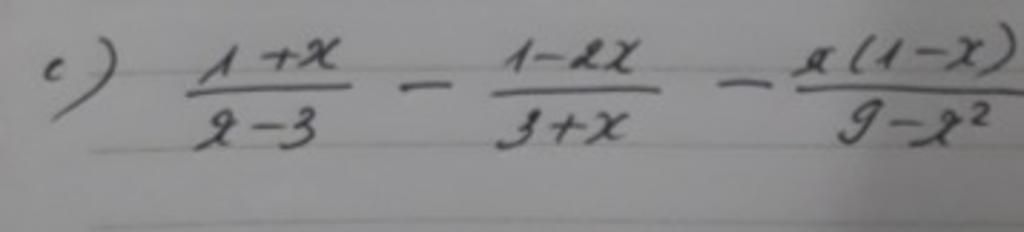 c) \frac{1+x}{x-3} - \frac{1-2x}{3+x} - \frac{x(1-x)}{9-x^2}